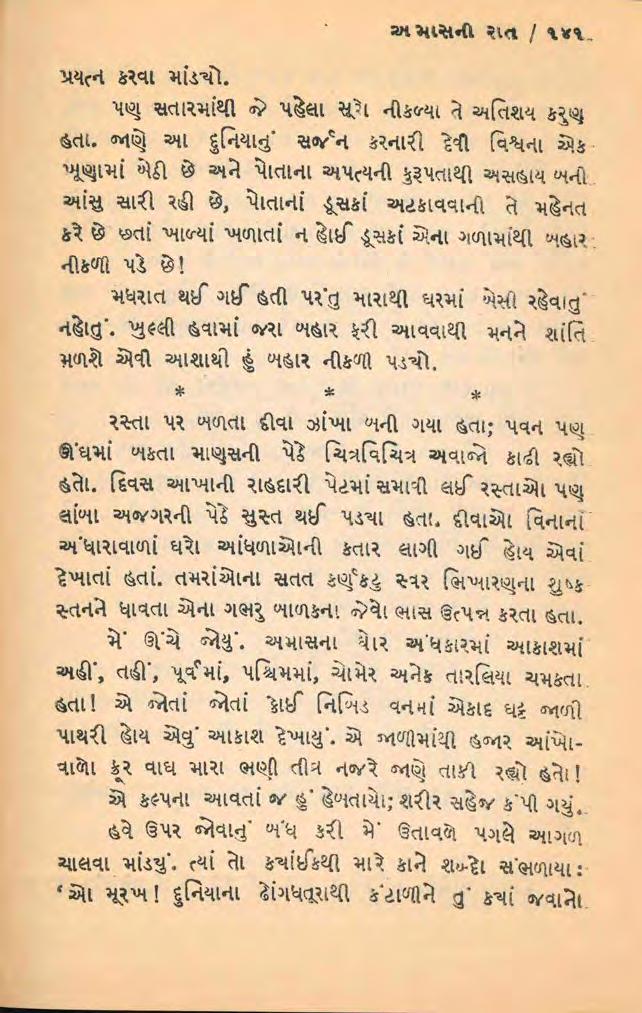 અમાસની રાત / ૧૪૧
પ્રયત્ન કરવા માંડચો.
પણ સતારમાંથી જે પહેલા સૂરો નીકળ્યા તે અતિશય કરુણ
હતા. જાણે આ દુનિયાનું સર્જન કરનારી દેવી વિશ્વના એક
ખૂણામાં બેઠી છે અને પોતાના અપત્યની કુરૂપતાથી અસહાય બની
આંસુ સારી રહી છે, પોતાનાં ડૂસકાં અટકાવવાની તે મહેનત
કરે છે છતાં ખાળ્યાં ખળાતાં ન હોઈ ડૂસકાં એના ગળામાંથી બહાર
નીકળી પડે છે!
મધરાત થઈ ગઈ હતી પરંતુ મારાથી ઘરમાં બેસી રહેવાતું
નહોતું. ખુલ્લી હવામાં જરા બહાર ફરી આવવાથી મનને શાંતિ
મળશે એવી આશાથી હું બહાર નીકળી પડચો.
* * *
રસ્તા પર બળતા દીવા ઝાંખા બની ગયા હતા; પવન પણ
ઊંઘમાં બકતા માણસની પેઠે ચિત્રવિચિત્ર અવાજો કાઢી રહ્યો
હતો. દિવસ આખાની રાહદારી પેટમાં સમાવી લઈ રસ્તાઓ પણ
લાંબા અજગરની પેઠે સુસ્ત થઈ પડચા હતા. દીવાઓ વિનાનાં
અંધારાવાળાં ઘરો આંધળાઓની કતાર લાગી ગઈ હોય એવાં
દેખાતાં હતાં. તમરાંઓના સતત કર્ણકટુ સ્વર ભિખારણના શુષ્ક
સ્તનને ધાવતા એના ગભરુ બાળકના જેવો ભાસ ઉત્પન્ન કરતા હતા.
મેં ઊંચે જોયું. અમાસના ઘોર અંધકારમાં આકાશમાં
અહીં, તહીં, પૂર્વમાં, પશ્ચિમમાં, ચોમેર અનેક તારલિયા ચમકતા
હતા! એ જોતાં જોતાં કોઈ નિબિડ વનમાં એકાદ ઘટ્ટ જાળી
પાથરી હોય એવું આકાશ દેખાયું. એ જાળીમાંથી હજાર આંખો-
વાળો ક્રૂર વાઘ મારા ભણી તીવ્ર નજરે જાણે તાકી રહ્યો હતો!
એ કલ્પના આવતાં જ હું હેબતાયો; શરીર સહેજ કંપી ગયું.
હવે ઉપર જોવાનું બંધ કરી મેં ઉતાવળે પગલે આગળ
ચાલવા માંડચું. ત્યાં તો કયાંઈકથી મારે કાને શબ્દો સંભળાયા :
‘ઓ મૂરખ! દુનિયાના ઢોંગધતૂરાથી કંટાળીને તું કયાં જવાનો